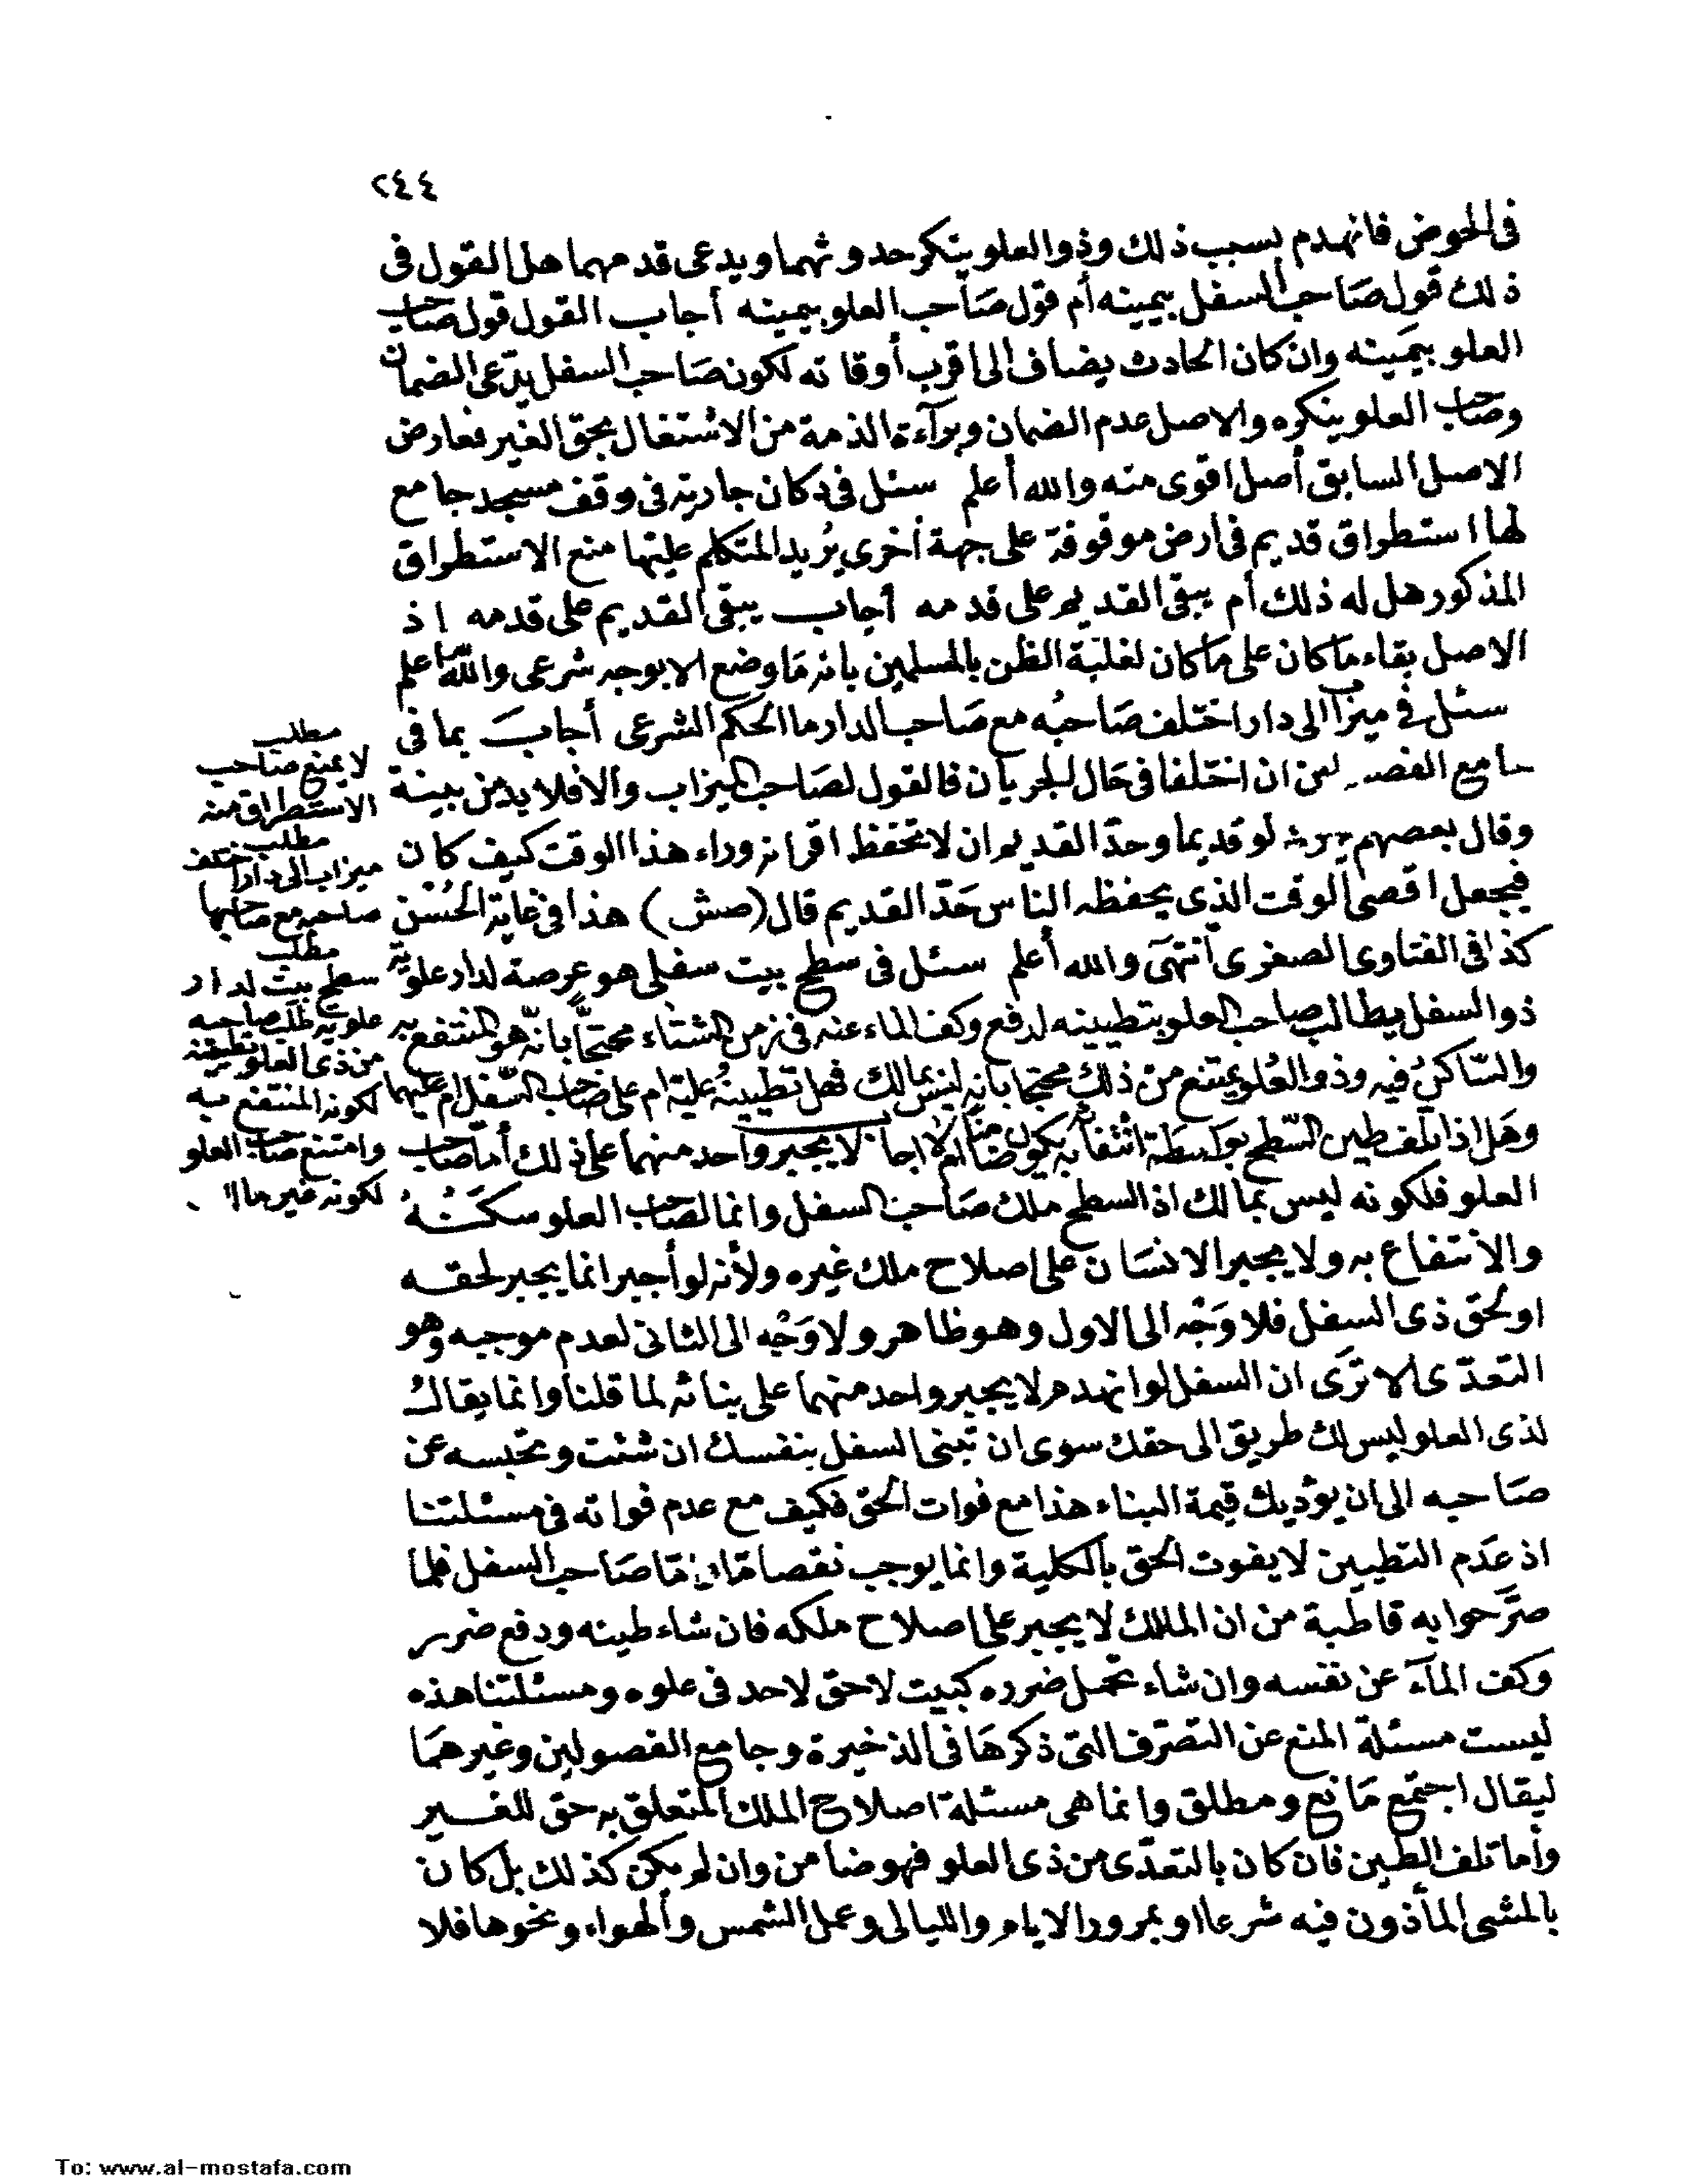 ٢٤٤
فى الحوض فانهدم بسبب ذلك وذو العلو ينكر حدوثهما ويدعى قدمهما هل القول فى
ذلك قول صاحب السفل بيمينه أم قول صاحب العلو بيمينه أجاب القول قول صاحب
العلو بيمينه وان كان الحادث يضاف الى اقرب أوقاته لكون صاحب السفل يدّعى الضمان
وصاحب العلو ينكره والاصل عدم الضمان وبرآءة الذمة من الاشتغال بحق الغير فعارض
الاصل السابق أصل اقوى منه والله أعلم سئل فى دكان جارية فى وقف مسجد جامع
لها استطراق قديم فى أرض موقوفة على جهة أخرى يُريد المتكلم عليها منع الاستطراق
المذكور هل له ذلك أم يبقى القديم على قدمه أجاب يبقى القديم على قدمه اذ
الاصل بقاء ما كان على ما كان لغلبة الظن بالمسلمين بانه ما وضع الا بوجه شرعى والله اعلم
سئل فى ميزاب الى دار اختلف صاحبُه مع صاحب الدار ما الحكم الشرعى أجابَ بما فى
جامع الفصولين ان اختلفا فى حال الجريان فالقول لصاحب الميزاب والا فلا بد من بينة
وقال بعضهم لو قديما وحدّ القديم ان لا تحفظ اقرانه وراء هذا الوقت كيف كان
فيجعل اقصى الوقت الذى يحفظه الناس حَدّ القديم قال (صش) هذا فى غاية الحُسْن
كذا فى الفتاوى الصغرى انتهى والله أعلم سئل فى سطح بيت سفلى هو عرصة لدار علوية
ذو السفل يطالب صاحب العلو بتطيينه لدفع وكف الماء عنه فى زمن الشتاء محتجّا بانّه هو المنتفع به
والسّاكن فيه وذو العُلو يمتنع من ذلك محتجا بانه ليس بمالك فهل تطيينهُ عليه ام على صاحب السّفل ام عليهما
وهل اذا تلف طين السّطح بواسطة انتفاعه به يكون ضامنا ام لا اجاب لا يجبر واحد منهما على ذلك أما صاحب
العلو فلكونه ليس بمالك اذ السطح ملك صاحب السفل وانما لصاحب العلو سكنُهُ
والانتفاع به ولا يجبر الانسان على اصلاح ملك غيره ولأنه لو أجبر انما يجبر لحقه
او لحق ذى السفل فلا وَجْه الى الاول وهو ظاهر ولا وَجْه الى الثانى لعدم موجبه وهو
التعدّى الا ترَى ان السفل لو انهدم لا يجبر واحد منهما على بنائه لما قلنا وانما يقال
لذى العلو ليس لك طريق الى حقك سوى ان تبنى السفل بنفسك ان شئت وتحبسه عن
صاحبه الى ان يؤديك قيمة البناء هذا مع فوات الحق فكيف مع عدم فواته فى مسئلتنا
اذ عدم التطيين لا يفوت الحق بالكلية وانما يوجب نقصا مّا وامّا صاحب السفل فلما
صرّحوا به قاطبة من ان المالك لا يجبر على اصلاح ملكه فان شاء طينه ودفع ضرر
وكف المآء عن نفسه وان شاء تحمل ضرره كبيت لا حق لاحد فى علوه ومسئلتنا هذه
ليست مسئلة المنع عن التصرّف التى ذكرها فى الذخيرة وجامع الفصولين وغيرهما
ليقال اجتمع مانع ومطلق وانما هى مسئلة اصلاح الملك المتعلق به حق للغير
وأما تلف الطين فان كان بالتعدّى من ذى العلو فهو ضامن وان لم يكن كذلك بل كان
بالمشى المأذون فيه شرعا او بمرور الايام والليالى وعمل الشمس والهواء ونحوها فلا
مطلب
لا يمنع صاحب
الاستطراق منه
مطلب
ميزاب الى دار اختلف
صاحبه مع صاحبها
مطلب
سطح بيت لدار
علوية طلب صاحبه
من ذى العلو تطيينه
لكونه المنتفع به
وامتنع صاحب العلو
لكونه غير مالك
To: www.al-mostafa.com